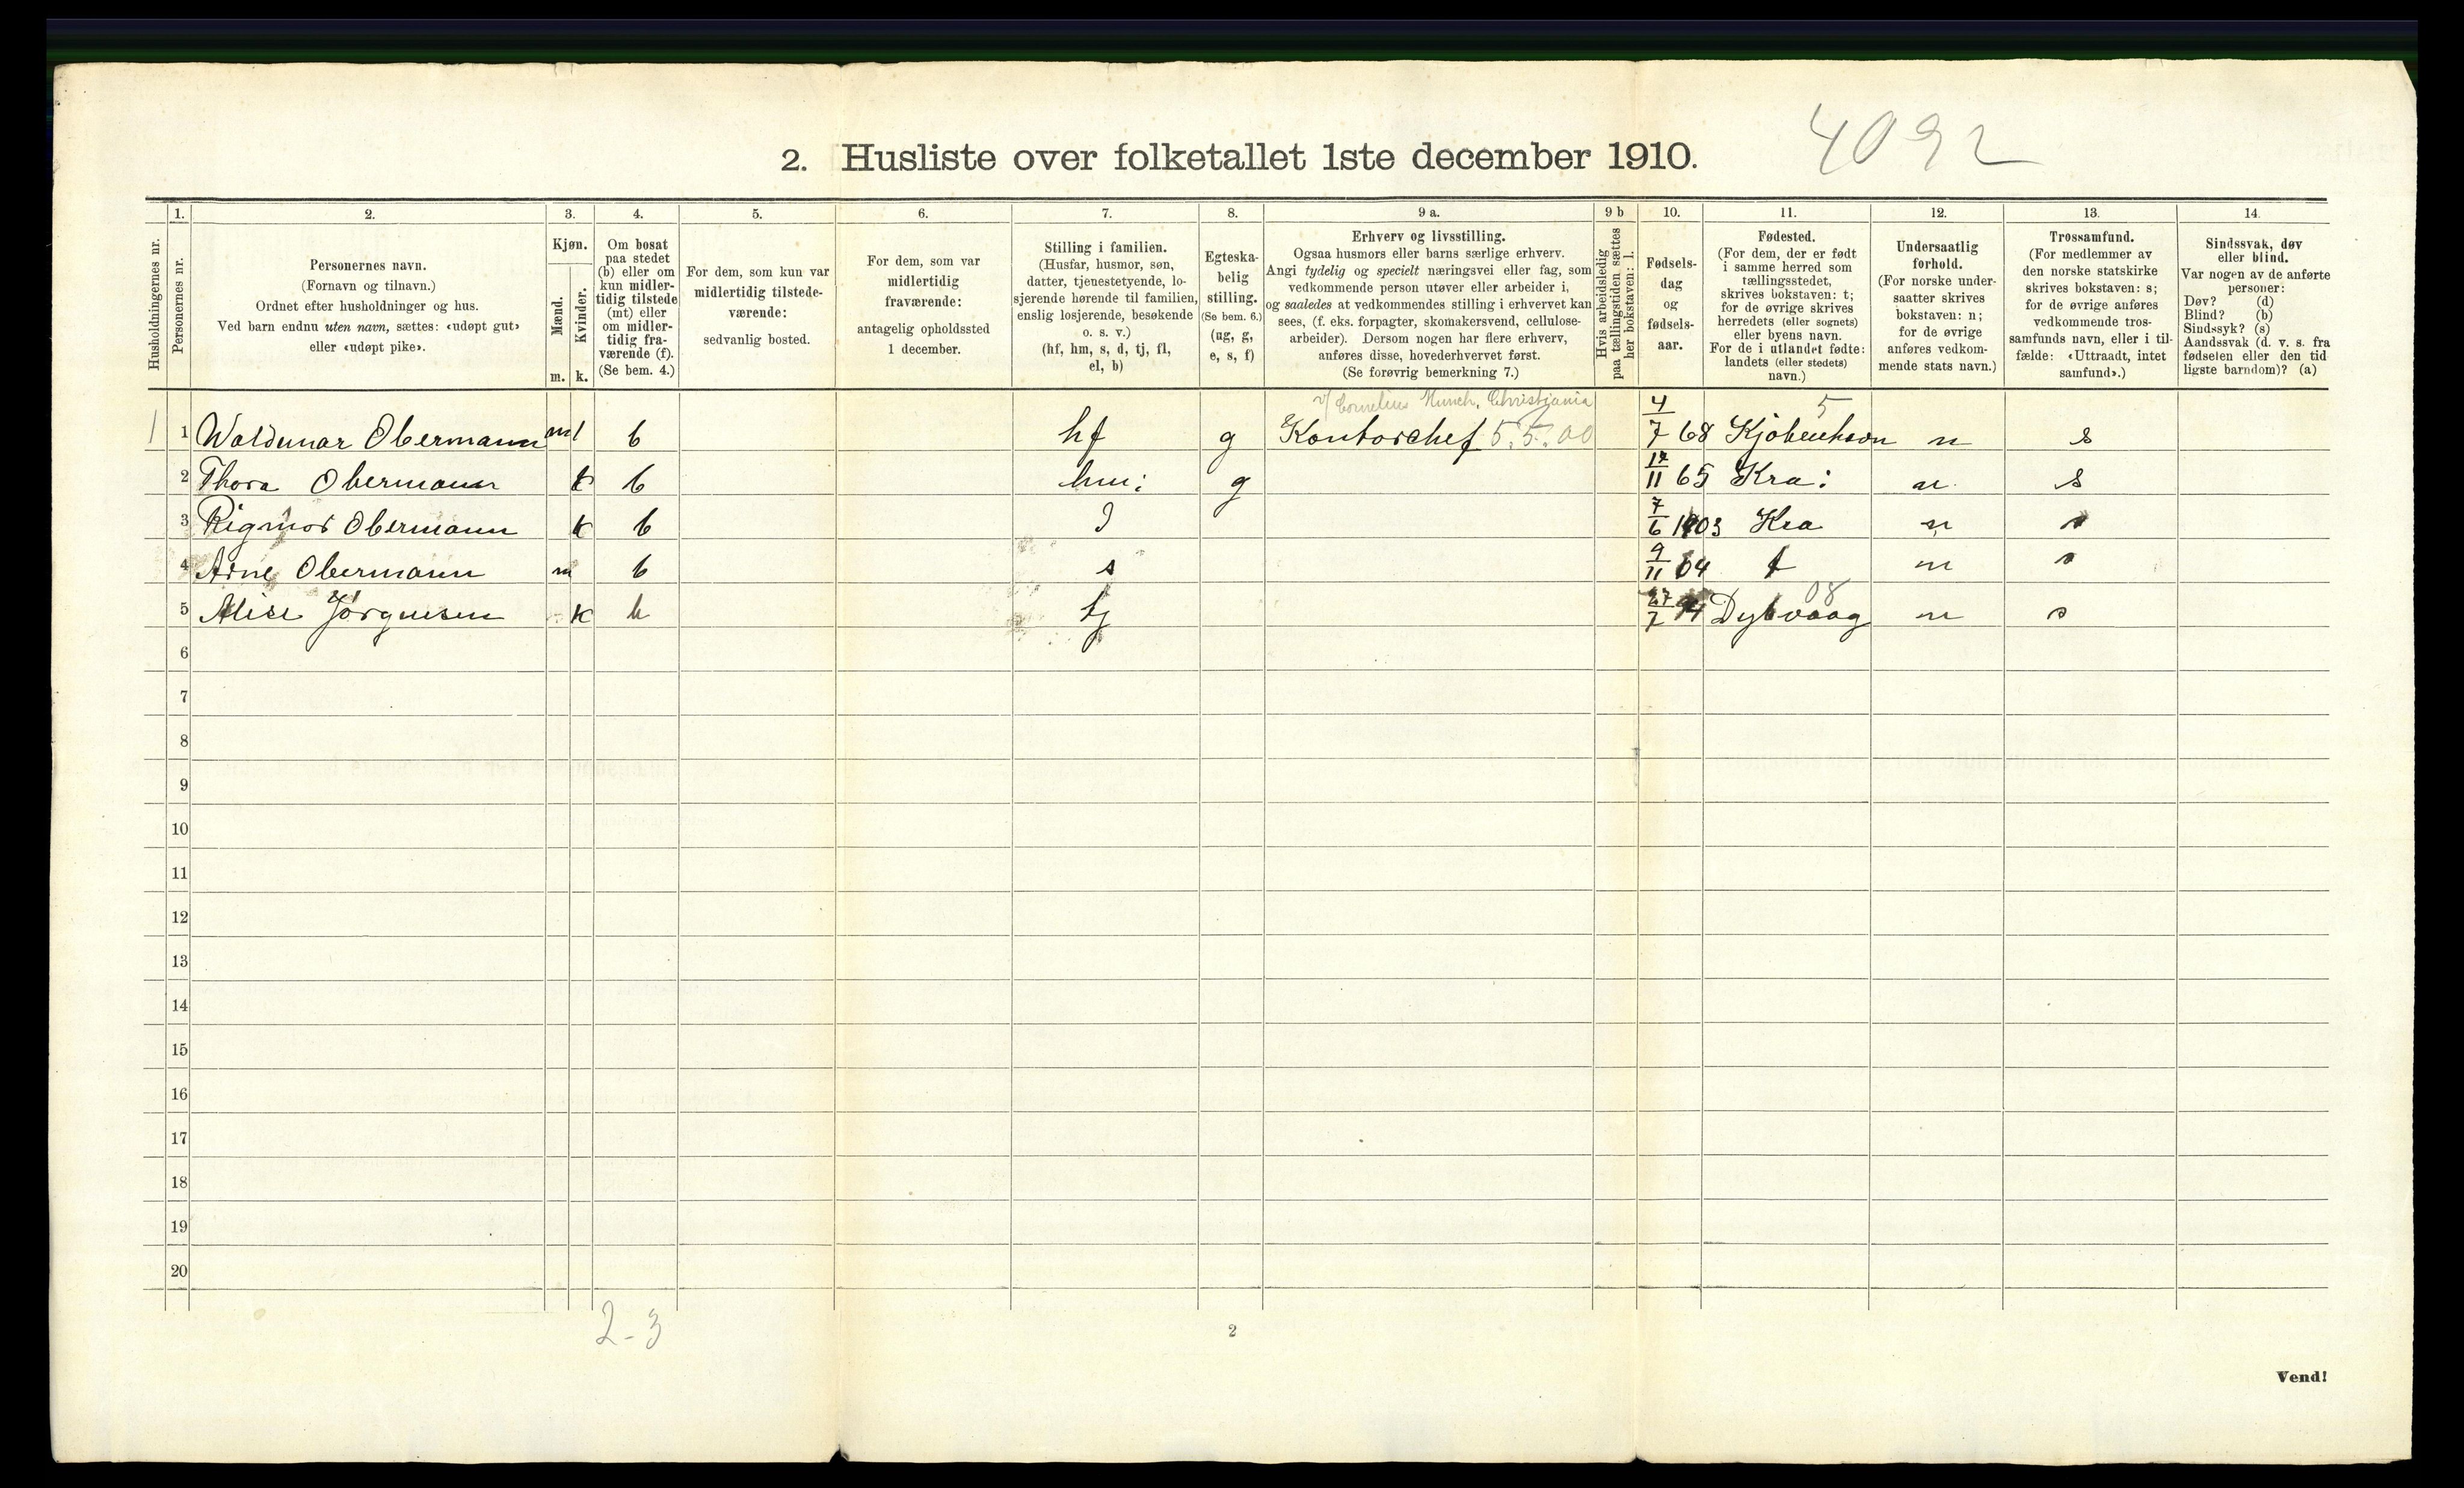 4092
2. Husliste over folketallet 1ste december 1910.
1. 2. 3. 4. 5. 6. 7. 8. 9 a. 9 b 10. 11. 12. 13. 14.
Husholdningernes nr.
Personernes nr.
Personernes navn.
(Fornavn og tilnavn.)
Ordnet efter husholdninger og hus.
Ved barn endnu uten navn, sættes: «udøpt gut»
eller «udøpt pike».
Kjøn.
Mænd.
Kvinder.
m. k.
Om bosat
paa stedet
(b) eller om
kun midler-
tidig tilstede
(mt) eller
om midler-
tidig fra-
værende (f).
(Se bem. 4.)
For dem, som kun var
midlertidig tilstede-
værende:
sedvanlig bosted.
For dem, som var
midlertidig
fraværende:
antagelig opholdssted
1 december.
Stilling i familien.
(Husfar, husmor, søn,
datter, tjenestetyende, lo-
sjerende hørende til familien,
enslig losjerende, besøkende
o. s. v.)
(hf, hm, s, d, tj, fl,
el, b)
Egteska-
belig
stilling.
(Se bem. 6.)
(ug, g,
e, s, f)
Erhverv og livsstilling.
Ogsaa husmors eller barns særlige erhverv.
Angi tydelig og specielt næringsvei eller fag, som
vedkommende person utøver eller arbeider i,
og saaledes at vedkommendes stilling i erhvervet kan
sees, (f. eks. forpagter, skomakersvend, cellulose-
arbeider). Dersom nogen har flere erhverv,
anføres disse, hovederhvervet først.
(Se forøvrig bemerkning 7.)
Hvis arbeidsledig
paa tællingstiden sættes
her bokstaven: l.
Fødsels-
dag
og
fødsels-
aar.
Fødested.
(For dem, der er født
i samme herred som
tællingsstedet,
skrives bokstaven: t;
for de øvrige skrives
herredets (eller sognets)
eller byens navn.
For de i utlandet fødte:
landets (eller stedets)
navn.)
Undersaatlig
forhold.
(For norske under-
saatter skrives
bokstaven: n;
for de øvrige
anføres vedkom-
mende stats navn.)
Trossamfund.
(For medlemmer av
den norske statskirke
skrives bokstaven: s;
for de øvrige anføres
vedkommende tros-
samfunds navn, eller i til-
fælde: «Uttraadt, intet
samfund».)
Sindssvak, døv
eller blind.
Var nogen av de anførte
personer:
Døv? (d)
Blind? (b)
Sindssyk? (s)
Aandssvak (d. v. s. fra
fødselen eller den tid
ligste barndom)? (a)
v/ Cornelius Munch, Christiania 5
1 1 Waldemar Obermann m b hf g Kontorchef 5.5.00 4/7 68 Kjøbenhavn n s
2 Thora Obermann k b hm: g 17/11 65 Kra: n s
3 Rigmor Obermann k b d 7/6 1903 Kra n s
4 Arne Obermann m b s 9/11 04 t n s
08
5 Alise Jørgensen k b tj 27/7 94 Dybvaag n s
6
7
8
9
10
11
12
13
14
15
16
17
18
19
20
2-3
2
Vend!